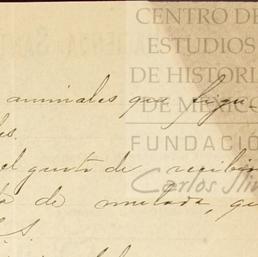 CENTRO DE
ESTUDIOS
DE HISTORI
DE MÉXICO
FUNDACIÓ
Carlos Slim
animales que figu
es.
el gusto de recibir
de mulada, qu
S.